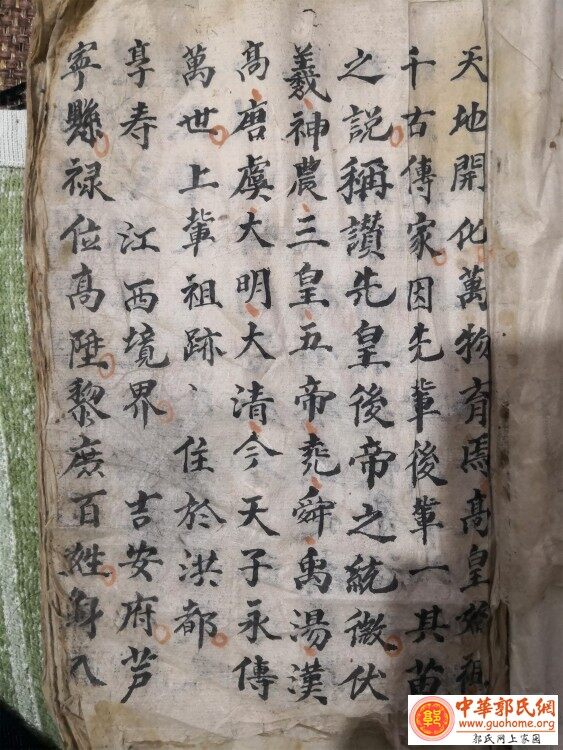 天地開化萬物育焉高皇始祖
千古傳家因先輩後輩一其苗
之說稱讃先皇後帝之統微伏
羲神農三皇五帝尭舜禹湯漢
高唐虞大明大清今天子永傳
萬世上輩祖跡、住於洪都
亨寿 江西境界 吉安府芦
寧縣禄位高陞黎庶百姓身入
中華郭氏網
www.guohome.org
郭氏网上家园